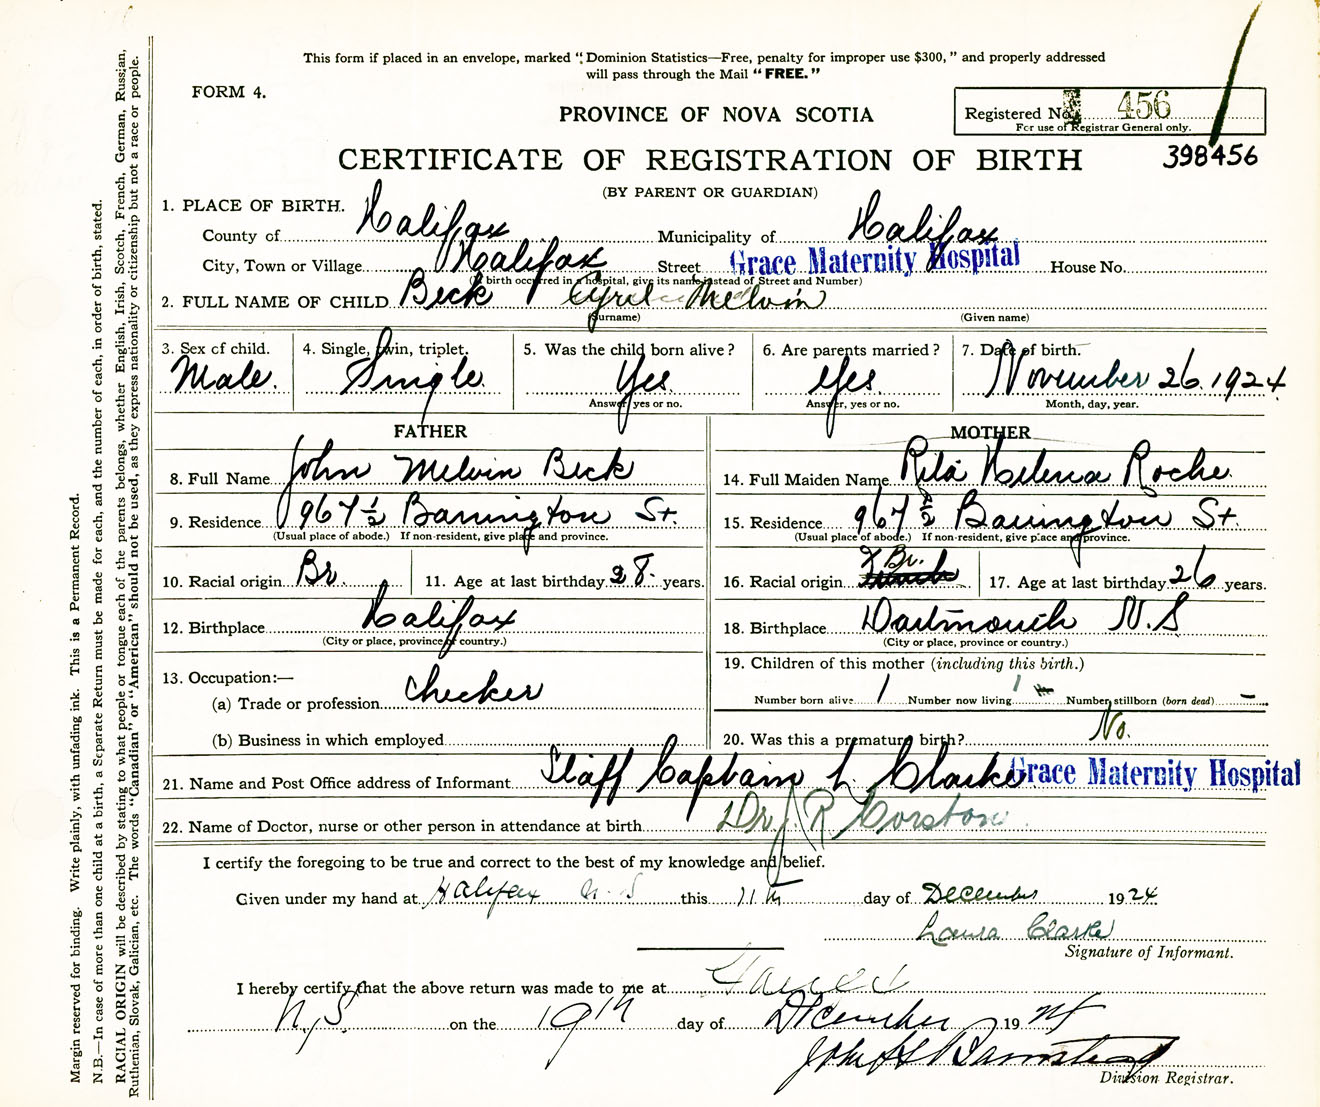 This form if placed in an envelope, marked "Dominion Statistics—Free, penalty for improper use $300," and properly addressed
will pass through the Mail "FREE."
FORM 4.
PROVINCE OF NOVA SCOTIA
Registered No. 456
For use of Registrar General only.
CERTIFICATE OF REGISTRATION OF BIRTH
398456
(BY PARENT OR GUARDIAN)
1. PLACE OF BIRTH.
County of Halifax Municipality of Halifax
City, Town or Village Halifax Street Grace Maternity Hospital House No.
(If birth occurred in a hospital, give its name instead of Street and Number)
2. FULL NAME OF CHILD Beck Cyril Melvin
(Surname) (Given name)
3. Sex of child. 4. Single, twin, triplet. 5. Was the child born alive? 6. Are parents married? 7. Date of birth.
Male. Single. Yes. Yes. November 26. 1924
Answer yes or no. Answer, yes or no. Month, day, year.
FATHER MOTHER
8. Full Name John Melvin Beck 14. Full Maiden Name Rita Helena Roche.
9. Residence 967 1/2 Barrington St. 15. Residence 967 1/2 Barrington St.
(Usual place of abode.) If non-resident, give place and province. (Usual place of abode.) If non-resident, give place and province.
10. Racial origin Br. 11. Age at last birthday 28. years. 16. Racial origin Br. 17. Age at last birthday 26 years.
12. Birthplace Halifax 18. Birthplace Dartmouth N.S
(City or place, province or country.) (City or place, province or country.)
19. Children of this mother (including this birth.)
13. Occupation:—
(a) Trade or profession checker Number born alive 1 Number now living 1 Number stillborn (born dead) –
(b) Business in which employed 20. Was this a premature birth? No.
21. Name and Post Office address of Informant Staff Captain L. Clarke Grace Maternity Hospital
22. Name of Doctor, nurse or other person in attendance at birth Dr. J. R. Corston
I certify the foregoing to be true and correct to the best of my knowledge and belief.
Given under my hand at Halifax N.S this 11th day of December 1924
Laura Clarke
Signature of Informant.
I hereby certify that the above return was made to me at
N.S. on the 19th day of December 1924
Division Registrar.
Margin reserved for binding. Write plainly, with unfading ink. This is a Permanent Record.
N.B.—In case of more than one child at a birth, a Separate Return must be made for each, and the number of each, in order of birth, stated.
RACIAL ORIGIN will be described by stating to what people or tongue each of the parents belongs, whether English, Irish, Scotch, French, German, Russian,
Ruthenian, Slovak, Galician, etc. The words "Canadian" or "American" should not be used, as they express nationality or citizenship but not a race or people.